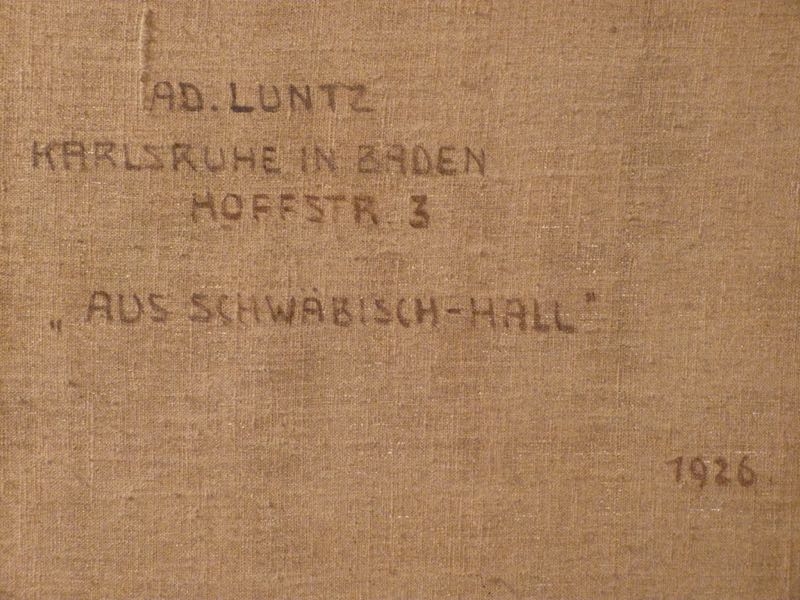 AD. LUNTZ
KARLSRUHE IN BADEN
HOFFSTR. 3
„AUS SCHWÄBISCH-HALL"
1926.